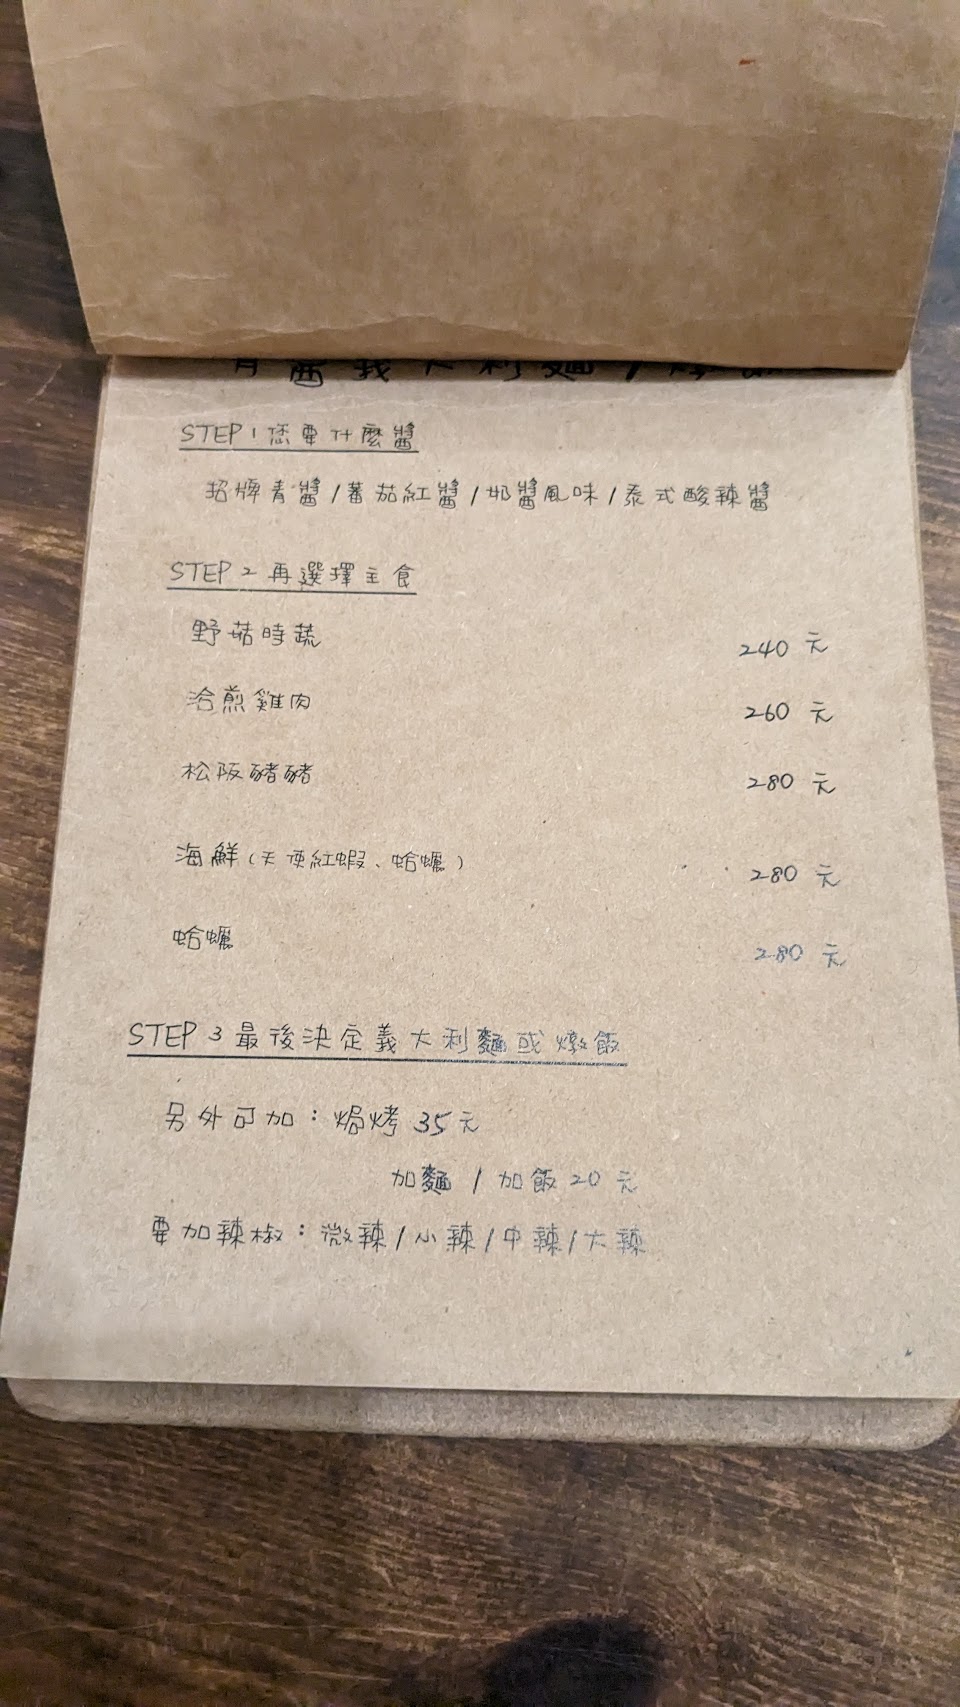 青醬義大利麵/燉飯
STEP 1 您要什麼醬
招牌青醬/蕃茄紅醬/奶醬風味/泰式酸辣醬
STEP 2 再選擇主食
野菇時蔬 240 元
洽煎雞肉 260 元
松阪豬豬 280 元
海鮮(天使紅蝦、蛤蠣) 280 元
蛤蠣 280 元
STEP 3 最後決定義大利麵或燉飯
另外可加：焗烤 35元
加麵 / 加飯 20 元
要加辣椒：微辣/小辣/中辣/大辣